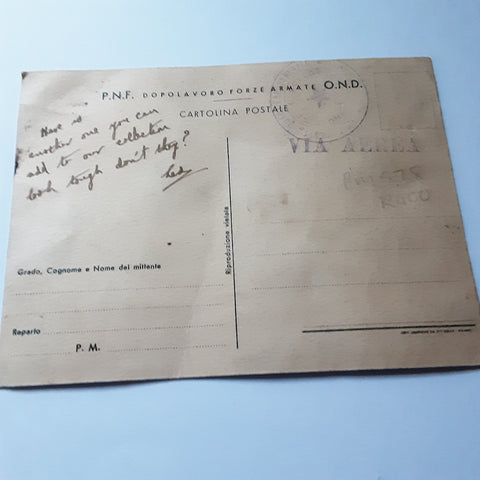 P.N.F. DOPOLAVORO FORZE ARMATE O.N.D.
CARTOLINA POSTALE
VIA AEREA
Here is
another one you can
add to our collection
look tough don't they?
Riproduzione vietata
Grado, Cognome e Nome del mittente
Reparto
P. M.